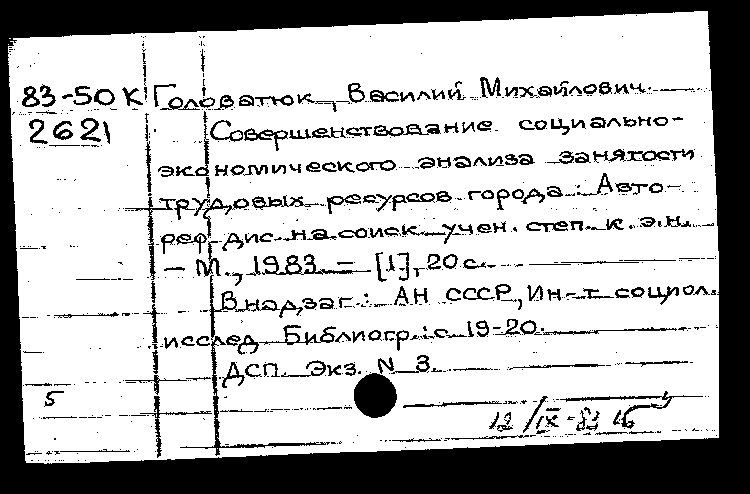 83-50К Головатюк, Василий Михайлович.
2621 Совершенствование социально-
экономического анализа занятости
трудовых ресурсов города : Авто-
реф. дис. на соиск. учен. степ. к. э. н.
– М., 1983. – [1], 20 с.
В надзаг.: АН СССР, Ин-т социол.
исслед. Библиогр.: с. 19-20.
ДСП. Экз. N 3.
5
12/IX-83